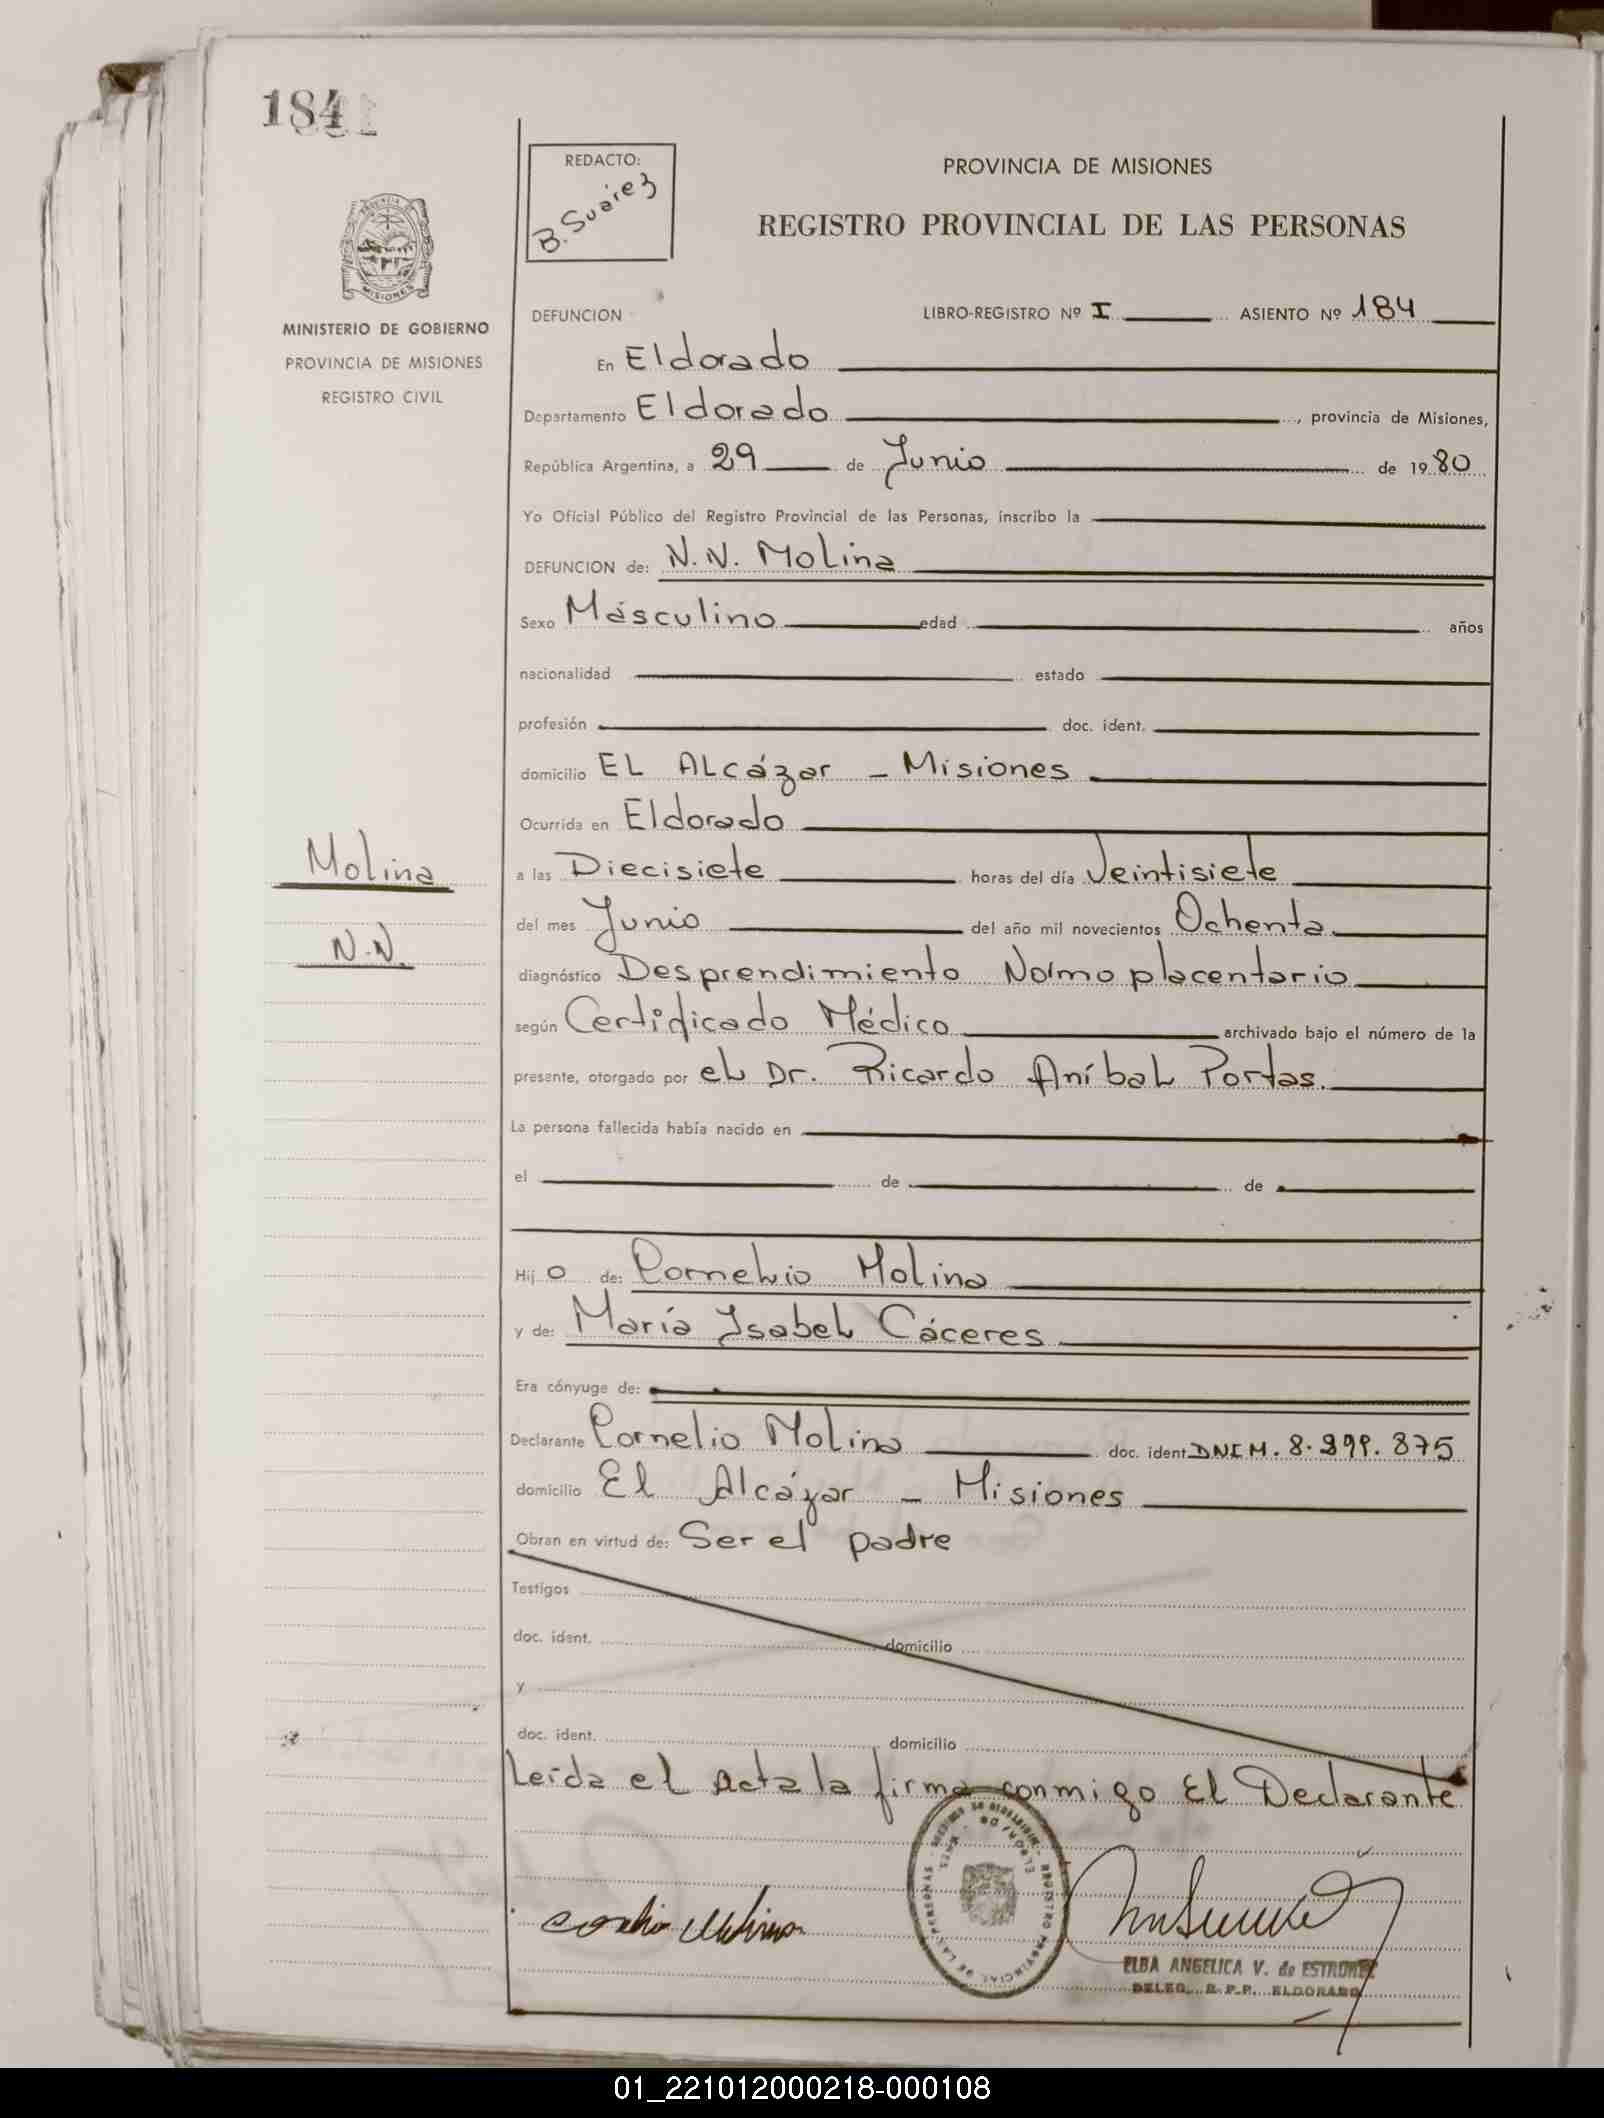 184
REDACTO:
B. Suárez
PROVINCIA DE MISIONES
REGISTRO PROVINCIAL DE LAS PERSONAS
MISIONES
MINISTERIO DE GOBIERNO
PROVINCIA DE MISIONES
REGISTRO CIVIL
DEFUNCION LIBRO-REGISTRO Nº I ASIENTO Nº 184
En Eldorado
Departamento Eldorado, provincia de Misiones,
República Argentina, a 29 de Junio de 1980
Yo Oficial Público del Registro Provincial de las Personas, inscribo la
DEFUNCION de: N.N. Molina
Sexo Másculino edad años
nacionalidad estado
profesión doc. ident.
domicilio EL ALcázar - Misiones
Ocurrida en Eldorado
Molina
a las Diecisiete horas del día Veintisiete
N.N.
del mes Junio del año mil novecientos Ochenta
diagnóstico Desprendimiento Nolmo placentario
según Certificado Médico archivado bajo el número de la
presente, otorgado por eL Dr. Ricardo AníbaL Portas.
La persona fallecida había nacido en
el de de
Hijo de: CorneLio Molina
y de: María IsabeL Cáceres
Era cónyuge de:
Declarante Cornelio MoLina doc. ident. DNIM. 8.299.875
domicilio El Alcázar - Misiones
Obran en virtud de: Ser el padre
Testigos
doc. ident. domicilio
y
doc. ident. domicilio
Leída el acta la firma conmigo El Declarante
ELBA ANGELICA V. de ESTRUNEZ
DELEG. R.P.P. ELDORADO
01_221012000218-000108